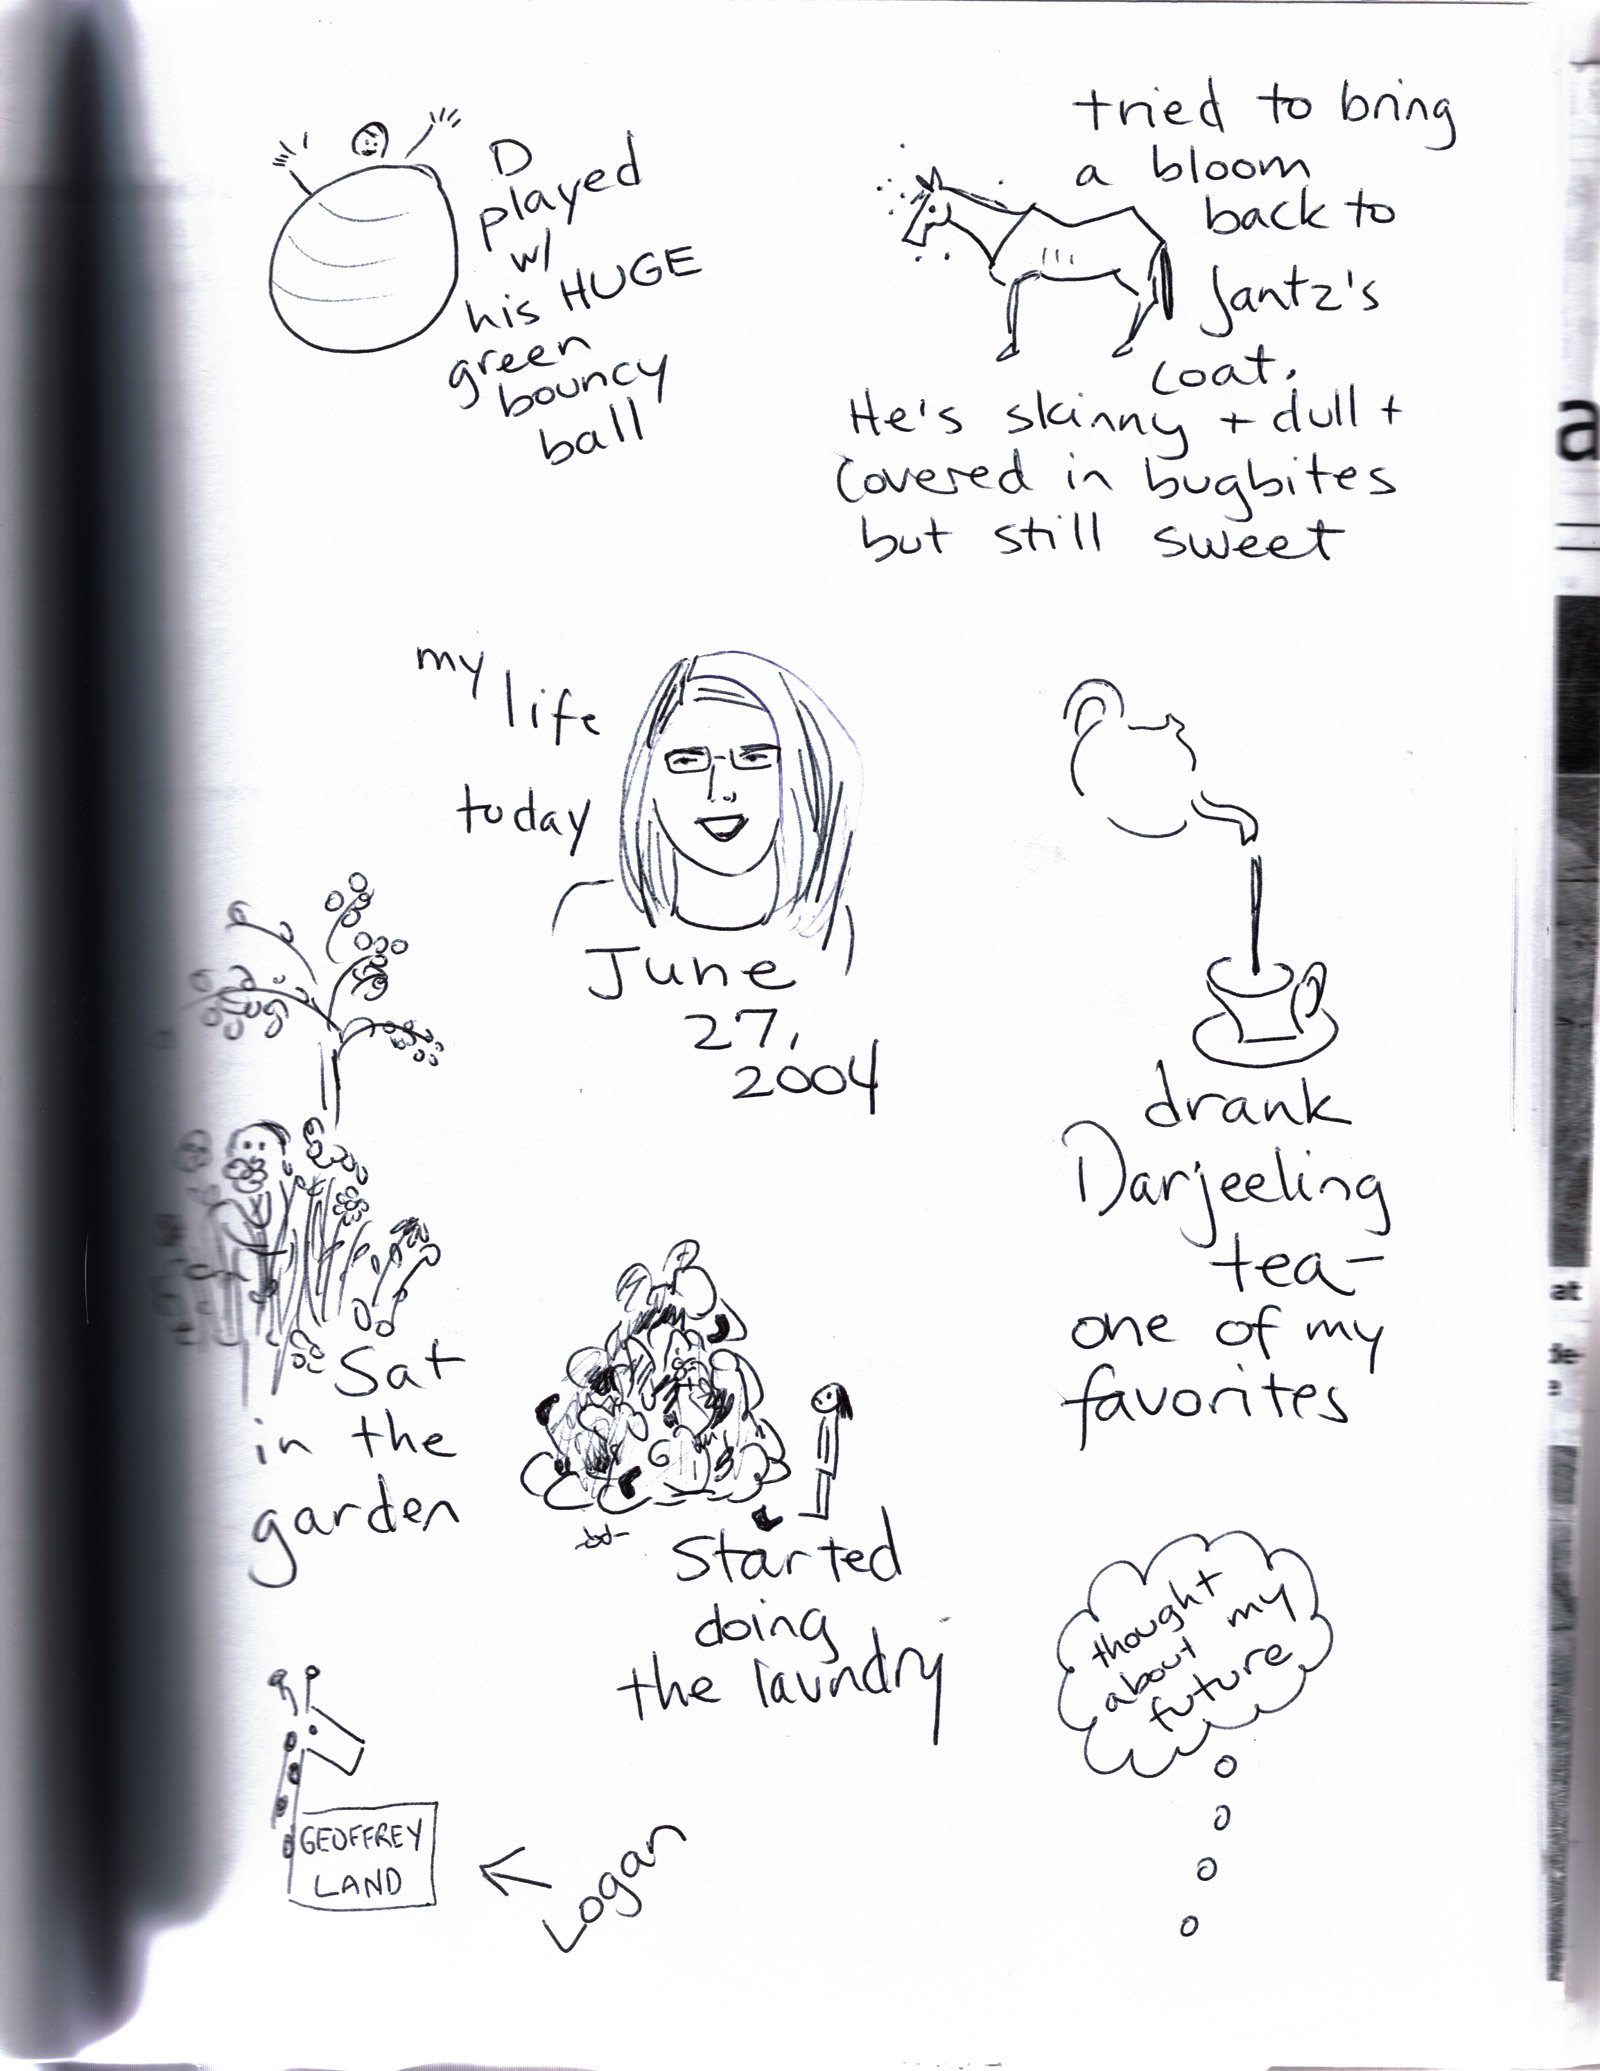 D
played
w/
his HUGE
green
bouncy
ball
tried to bring
a bloom
back to
Jantz's
coat.
He's skinny + dull +
covered in bugbites
but still sweet
my
life
today
June
27,
2004
drank
Darjeeling
tea-
one of my
favorites
Sat
in the
garden
Started
doing
the laundry
thought
about my
future
GEOFFREY
LAND
Logan
a
at
de